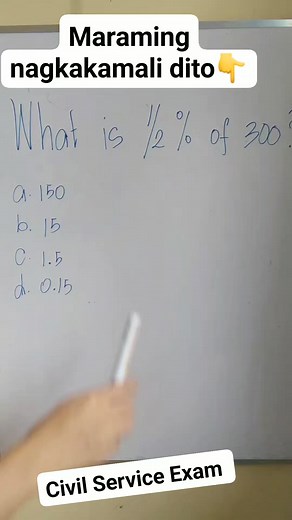 Maraming
nagkakamali dito👇
What is 1/2 % of 300?
a. 150
b. 15
c. 1.5
d. 0.15
Civil Service Exam